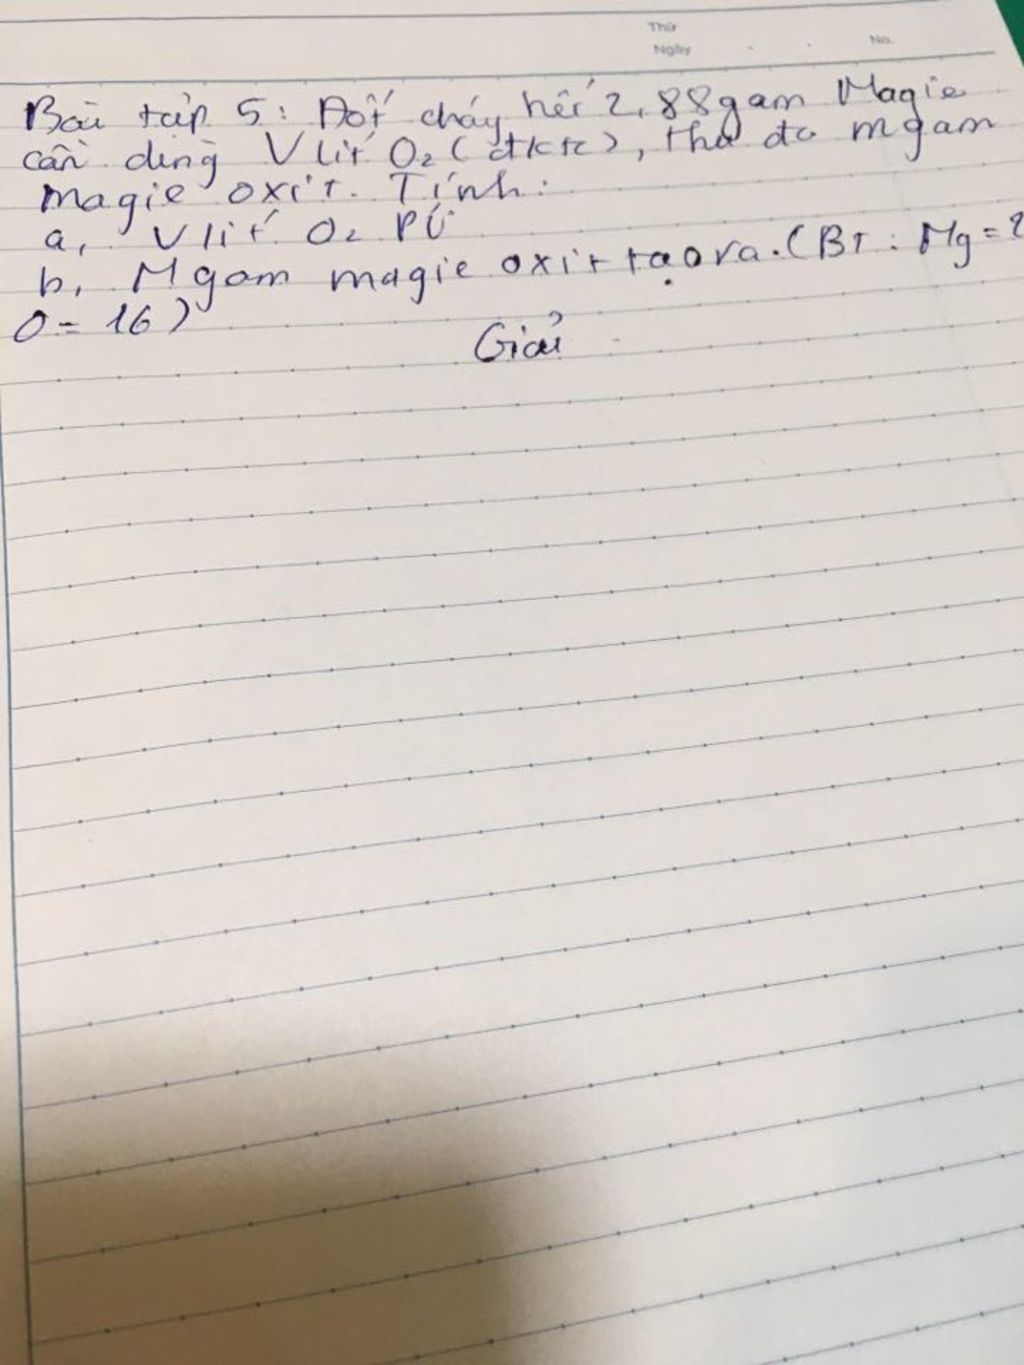 Thứ
Ngày . . No.
Bài tập 5: Đốt cháy hết 2,88gam Magie
cần dùng V lít O₂ (đktc), thu đc mgam
magie oxit. Tính:
a, V lít O₂ PƯ
b, Mgam magie oxit tạo ra. (BT: Mg = 2
O = 16)
Giải